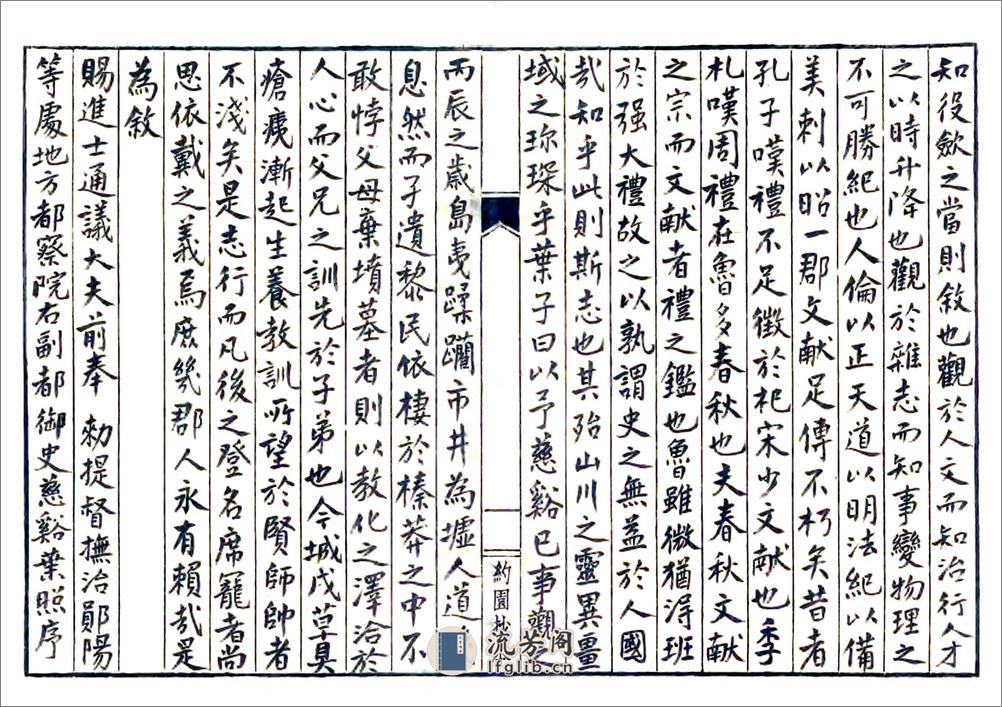 知役歛之當則敘也觀於人文而知治行人才
之以時升降也觀於雜志而知事變物理之
不可勝紀也人倫以正天道以明法紀以備
美刺以昭一郡文献足傳不朽矣昔者
孔子嘆禮不足徵於杞宋少文献也季
札嘆周禮在魯多春秋也夫春秋文献
之宗而文献者禮之鑑也魯雖微猶淂班
於强大禮故之以孰謂史之無益於人國
哉知乎此則斯志也其殆山川之靈異畺
域之珎琛乎葉子曰以予慈谿巳事觀之
丙辰之歲島夷蹂躪市井為墟人道
息然而孑遺黎民依棲於榛莽之中不
敢悖父母棄墳墓者則以教化之澤洽於
人心而父兄之訓先於子弟也今城戍草具
瘡痍漸起生養教訓所望於賢師帥者
不淺矣是志行而凡後之登名席寵者尚
思依戴之義焉庶幾郡人永有賴哉是
為敘
賜進士通議大夫前奉 勑提督撫治鄖陽
等處地方都察院右副都御史慈谿葉照序
約園抄
流芳阁
lfglib.cn